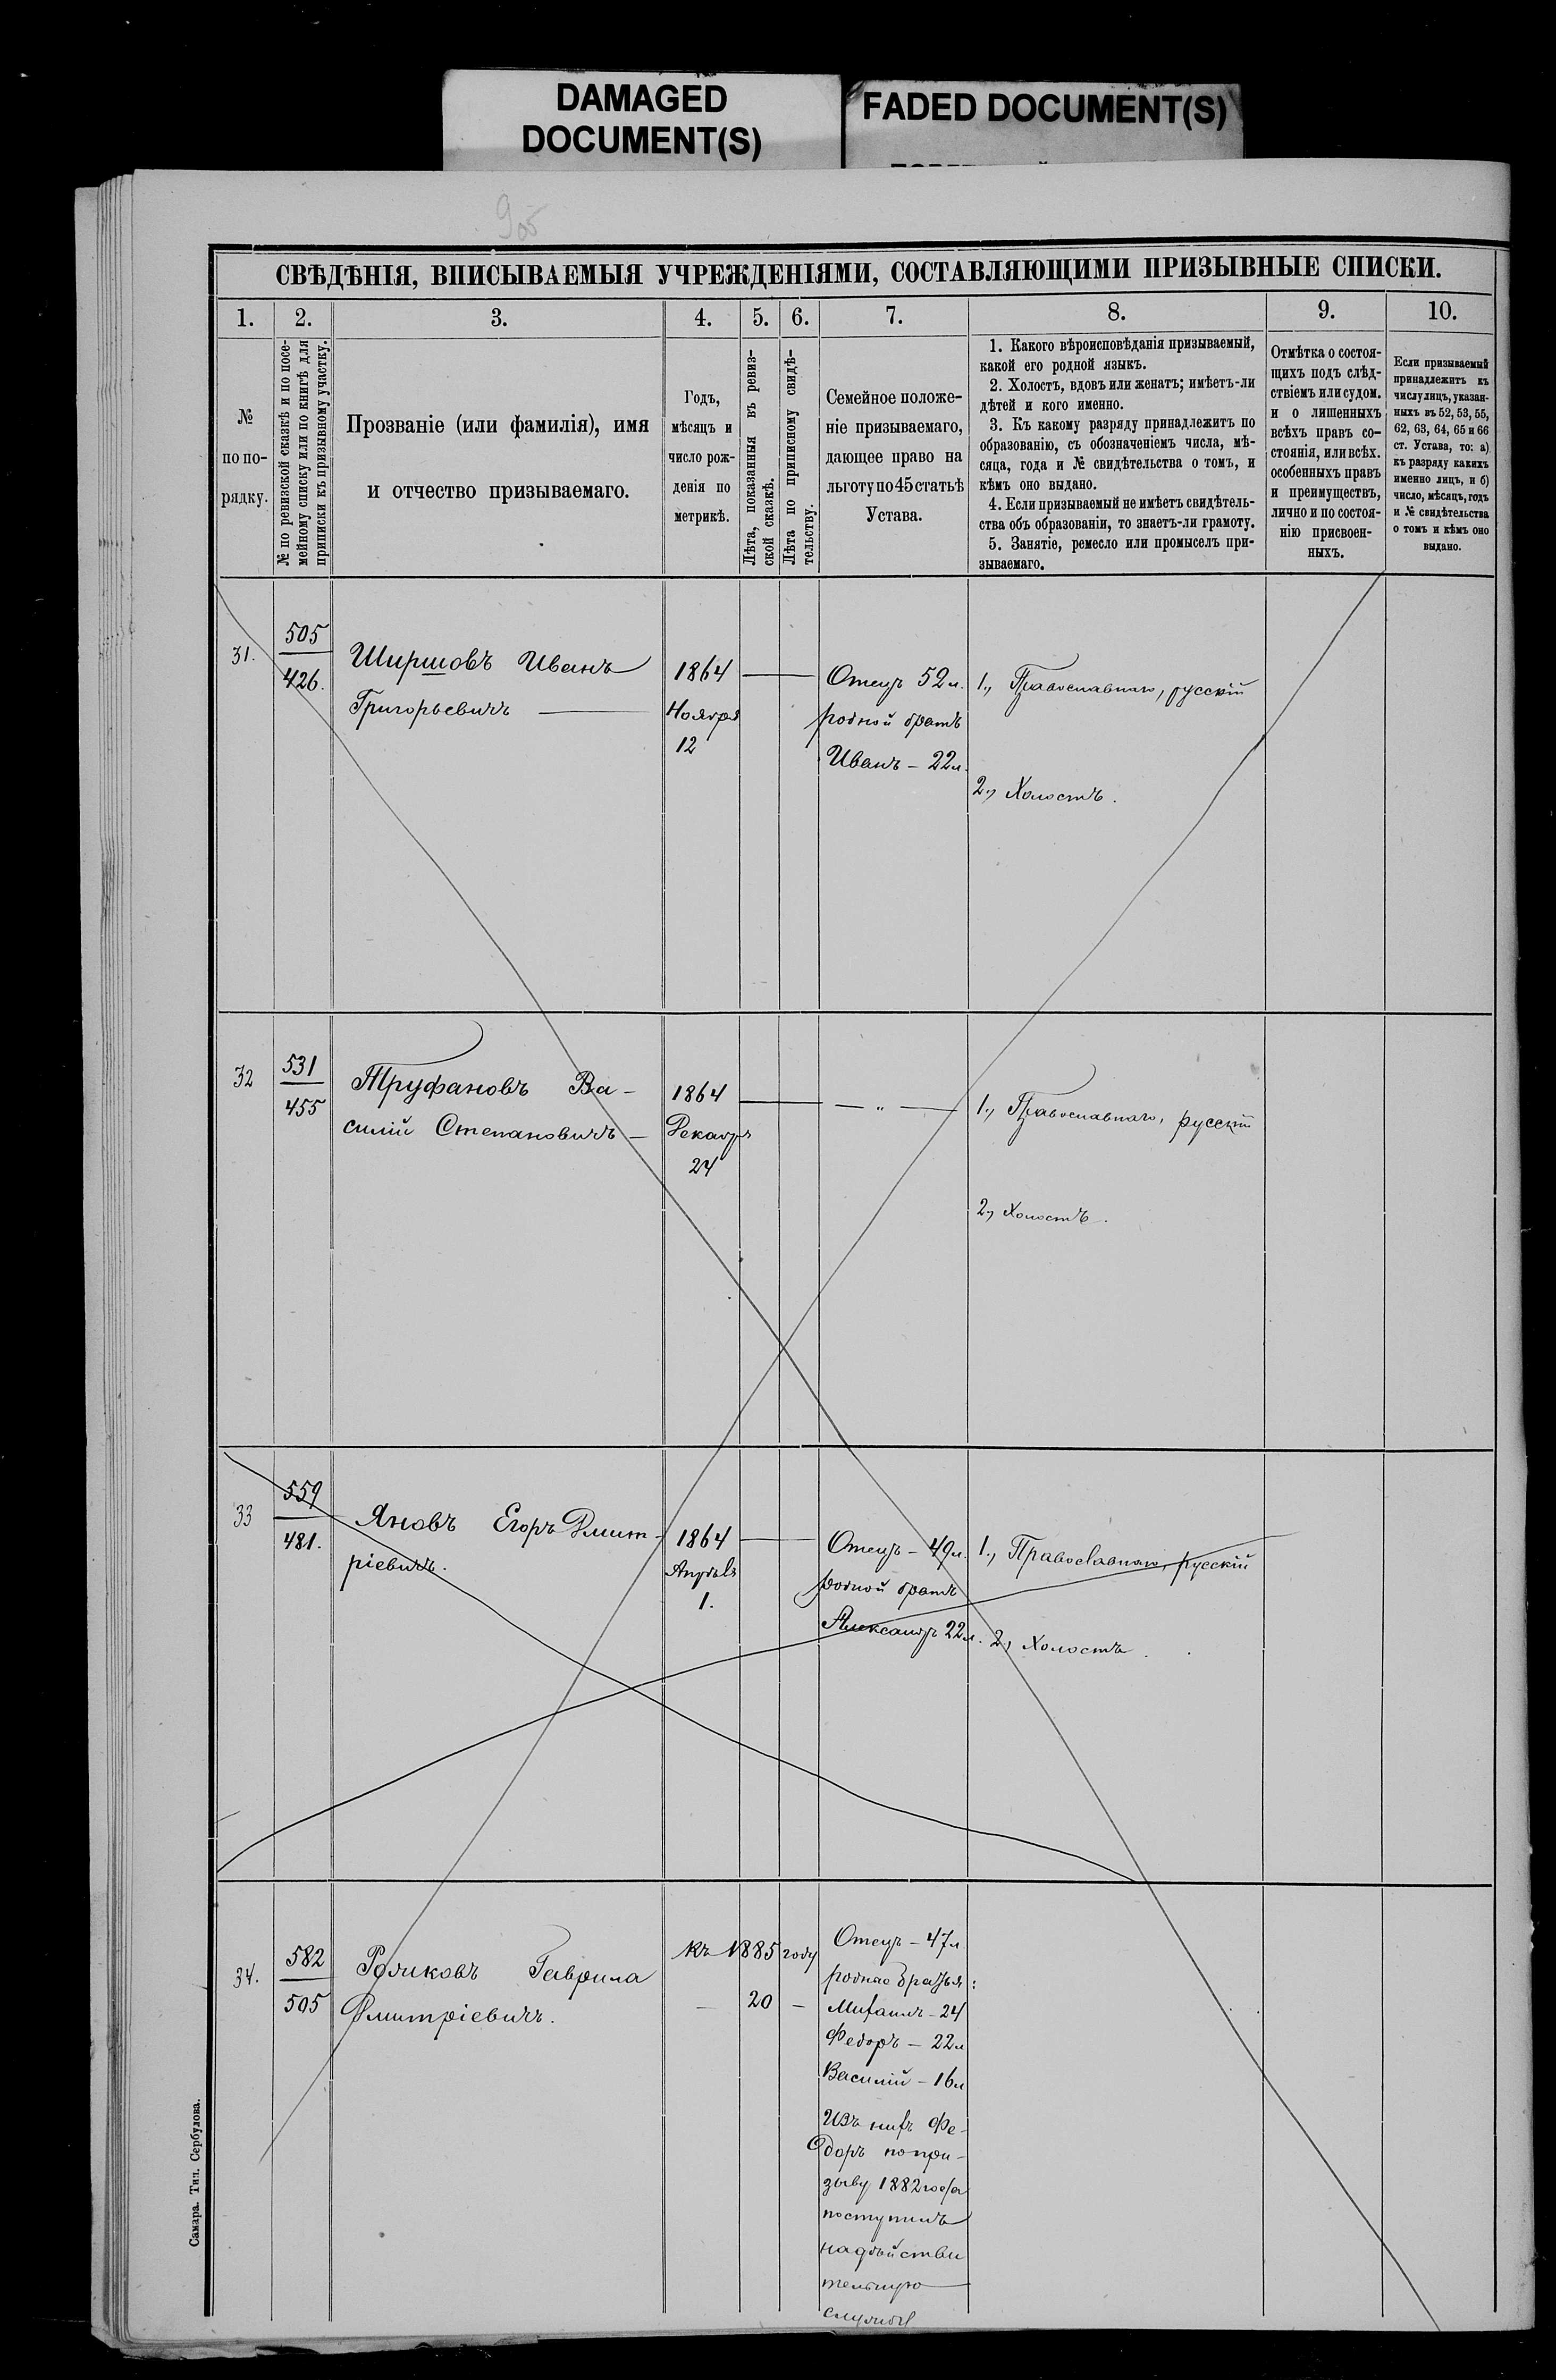 DAMAGED
DOCUMENT(S)
FADED DOCUMENT(S)
СВѢДѢНІЯ, ВПИСЫВАЕМЫЯ УЧРЕЖДЕНІЯМИ, СОСТАВЛЯЮЩИМИ ПРИЗЫВНЫЕ СПИСКИ.
1.
2.
3.
4.
5.
6.
7.
8.
9.
10.
№
по по-
рядку.
№ по ревизской сказкѣ и по посе-
мейному списку или по книгѣ для
приписки къ призывному участку.
Прозваніе (или фамилія), имя
и отчество призываемаго.
Годъ,
мѣсяцъ и
число рож-
денія по
метрикѣ.
Лѣта, показанныя въ ревиз-
ской сказкѣ.
Лѣта по приписному свидѣ-
тельству.
Семейное положе-
ніе призываемаго,
дающее право на
льготу по 45 статьѣ
Устава.
1. Какого вѣроисповѣданія призываемый,
какой его родной языкъ.
2. Холостъ, вдовъ или женатъ; имѣетъ-ли
дѣтей и кого именно.
3. Къ какому разряду принадлежитъ по
образованію, съ обозначеніемъ числа, мѣ-
сяца, года и № свидѣтельства о томъ, и
кѣмъ оно выдано.
4. Если призываемый не имѣетъ свидѣтель-
ства объ образованіи, то знаетъ-ли грамоту.
5. Занятіе, ремесло или промыселъ при-
зываемаго.
Отмѣтка о состоя-
щихъ подъ слѣд-
ствіемъ или судомъ.
и о лишенныхъ
всѣхъ правъ со-
стоянія, или всѣх.
особенныхъ правъ
и преимуществъ,
лично и по состоя-
нію присвоен-
ныхъ.
Если призываемый
принадлежитъ къ
числу лицъ, указан-
ныхъ въ 52, 53, 55,
62, 63, 64, 65 и 66
ст. Устава, то: а)
къ разряду какихъ
именно лицъ, и б)
число, мѣсяцъ, годъ
и № свидѣтельства
о томъ и кѣмъ оно
выдано.
31.
505
426.
Ширшовъ Иванъ
Григорьевичъ
1864
Ноября
12
Отецъ 52 л.
родной братъ
Иванъ – 22 л.
1., Православнаго, русскій
2., Холостъ.
32
531
455
Труфановъ Ва-
силій Степановичъ –
1864
Декабря
24
— „ —
1., Православнаго, русскій
2., Холостъ.
33
559
481.
Яновъ Егоръ Дмит-
ріевичъ.
1864
Апрѣля
1.
Отецъ – 49 л.
родной братъ
Александръ 22 л.
1., Православнаго, русскій
2., Холостъ.
34.
582
505
Роликовъ Гаврила
Дмитріевичъ.
къ 1885 году
— 20 —
Отецъ – 47 л
родные братья:
Михаилъ – 24
Федоръ – 22 л
Василій – 16 л
Изъ нихъ Фе-
доръ по при-
зыву 1882 года
поступилъ
на дѣйстви
тельную
службу
Самара. Тип. Сербулова.